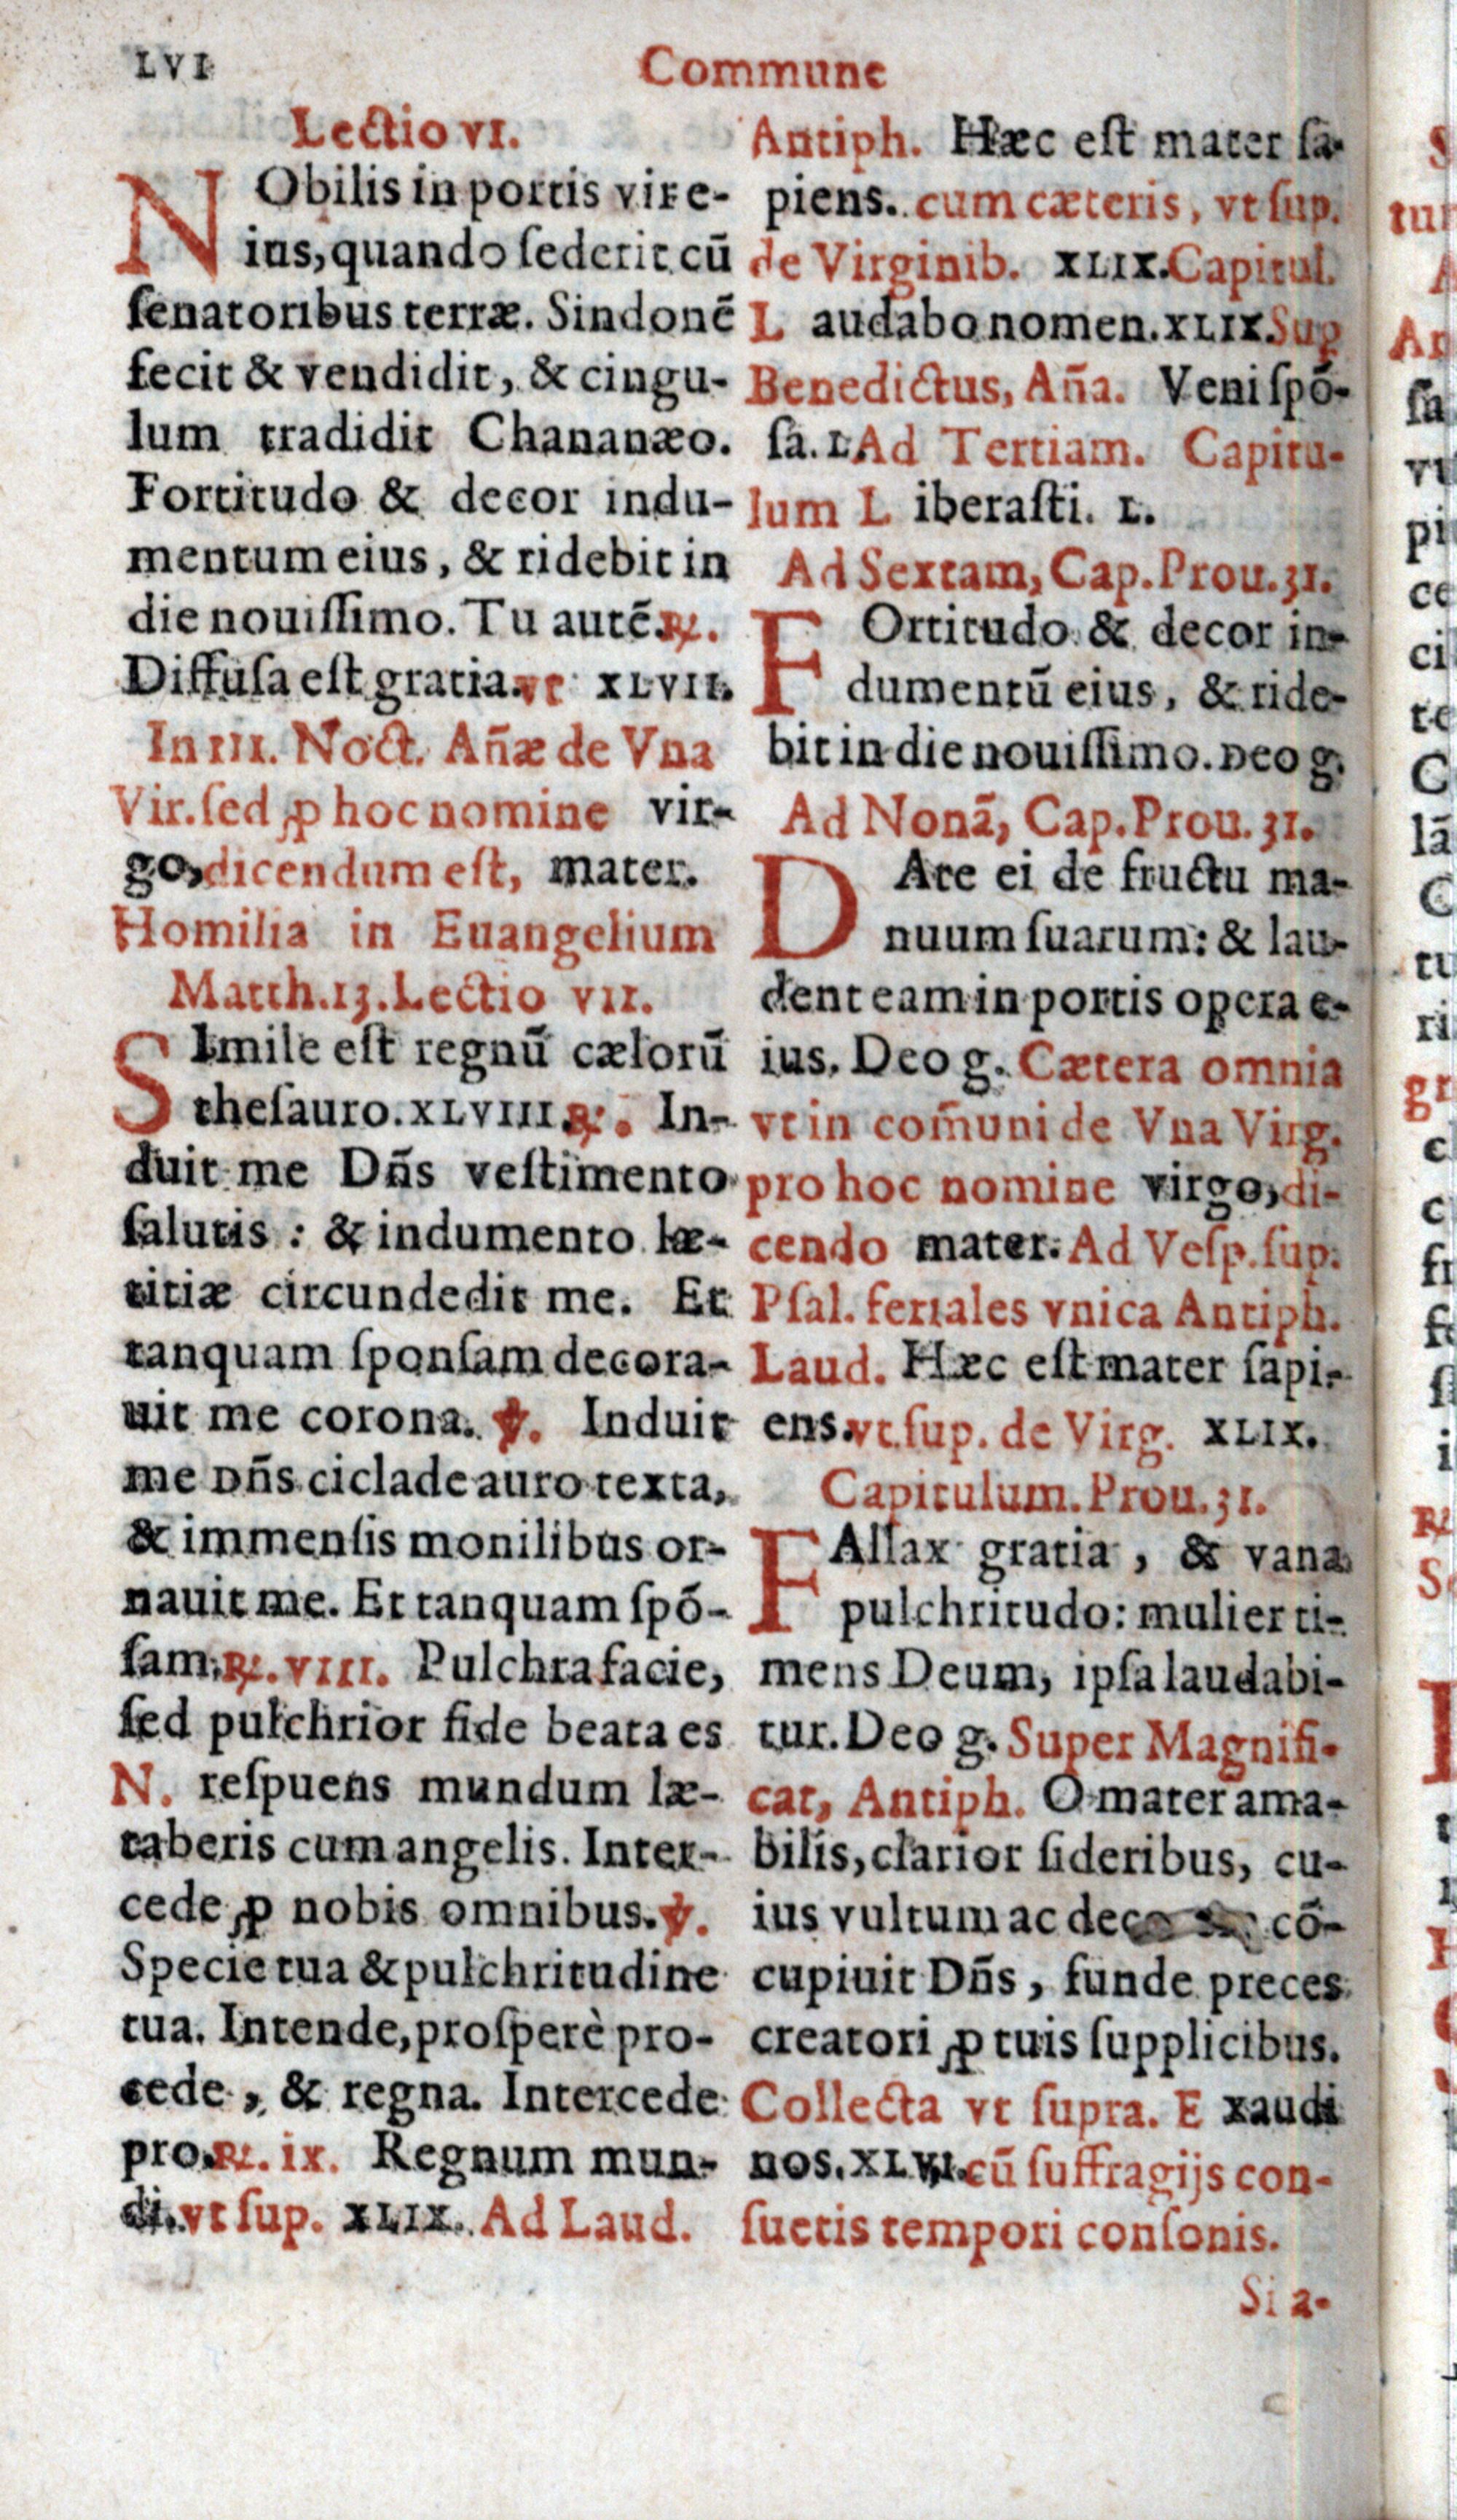 LVI
Commune
Lectio VI.
NObilis in portis vir e-
ius, quando ſederit cū
ſenatoribus terræ. Sindonē
fecit & vendidit, & cingu-
lum tradidit Chananæo.
Fortitudo & decor indu-
mentum eius, & ridebit in
die nouiſſimo. Tu autē. ℟.
Diffuſa eſt gratia. vt XLVII.
In III. Noct. Añæ de Vna
Vir. ſed ꝓ hoc nomine vir-
go, dicendum eſt, mater.
Homilia in Euangelium
Matth. 13. Lectio VII.
SImile eſt regnū cælorū
theſauro. XLVIII. ℟. In-
duit me Dñs veſtimento
ſalutis : & indumento læ-
titiæ circundedit me. Et
tanquam ſponſam decora-
uit me corona. ℣. Induit
me Dñs ciclade auro texta,
& immenſis monilibus or-
nauit me. Et tanquam ſpō-
ſam. ℟. VIII. Pulchra facie,
ſed pulchrior fide beata es
N. reſpuens mundum læ-
taberis cum angelis. Inter-
cede ꝓ nobis omnibus. ℣.
Specie tua & pulchritudine
tua. Intende, proſperè pro-
cede, & regna. Intercede
pro. ℟. ix. Regnum mun-
di. vt ſup. XLIX. Ad Laud.
Antiph. Hæc eſt mater ſa-
piens. cum cæteris, vt ſup.
de Virginib. XLIX. Capitul.
L audabo nomen. XLIX. Sup
Benedictus, Aña. Veni ſpō-
ſa. L. Ad Tertiam. Capitu-
lum L iberaſti. L.
Ad Sextam, Cap. Prou. 31.
FOrtitudo & decor in-
dumentū eius, & ride-
bit in die nouiſſimo. Deo g.
Ad Nonā, Cap. Prou. 31.
DAte ei de fructu ma-
nuum ſuarum: & lau-
dent eam in portis opera e-
ius. Deo g. Cætera omnia
vt in com̄uni de Vna Virg.
pro hoc nomine virgo, di-
cendo mater. Ad Veſp. ſup.
Pſal. feriales vnica Antiph.
Laud. Hæc eſt mater ſapi-
ens. vt ſup. de Virg. XLIX.
Capitulum. Prou. 31.
FAllax gratia, & vana
pulchritudo: mulier ti-
mens Deum, ipſa laudabi-
tur. Deo g. Super Magnifi-
cat, Antiph. O mater ama-
bilis, clarior ſideribus, cu-
ius vultum ac cō-
cupiuit Dñs, funde preces
creatori ꝓ tuis ſupplicibus.
Collecta vt ſupra. E xaudi
nos. XLVI. cū ſuffragijs con-
ſuetis tempori conſonis.
Si a-